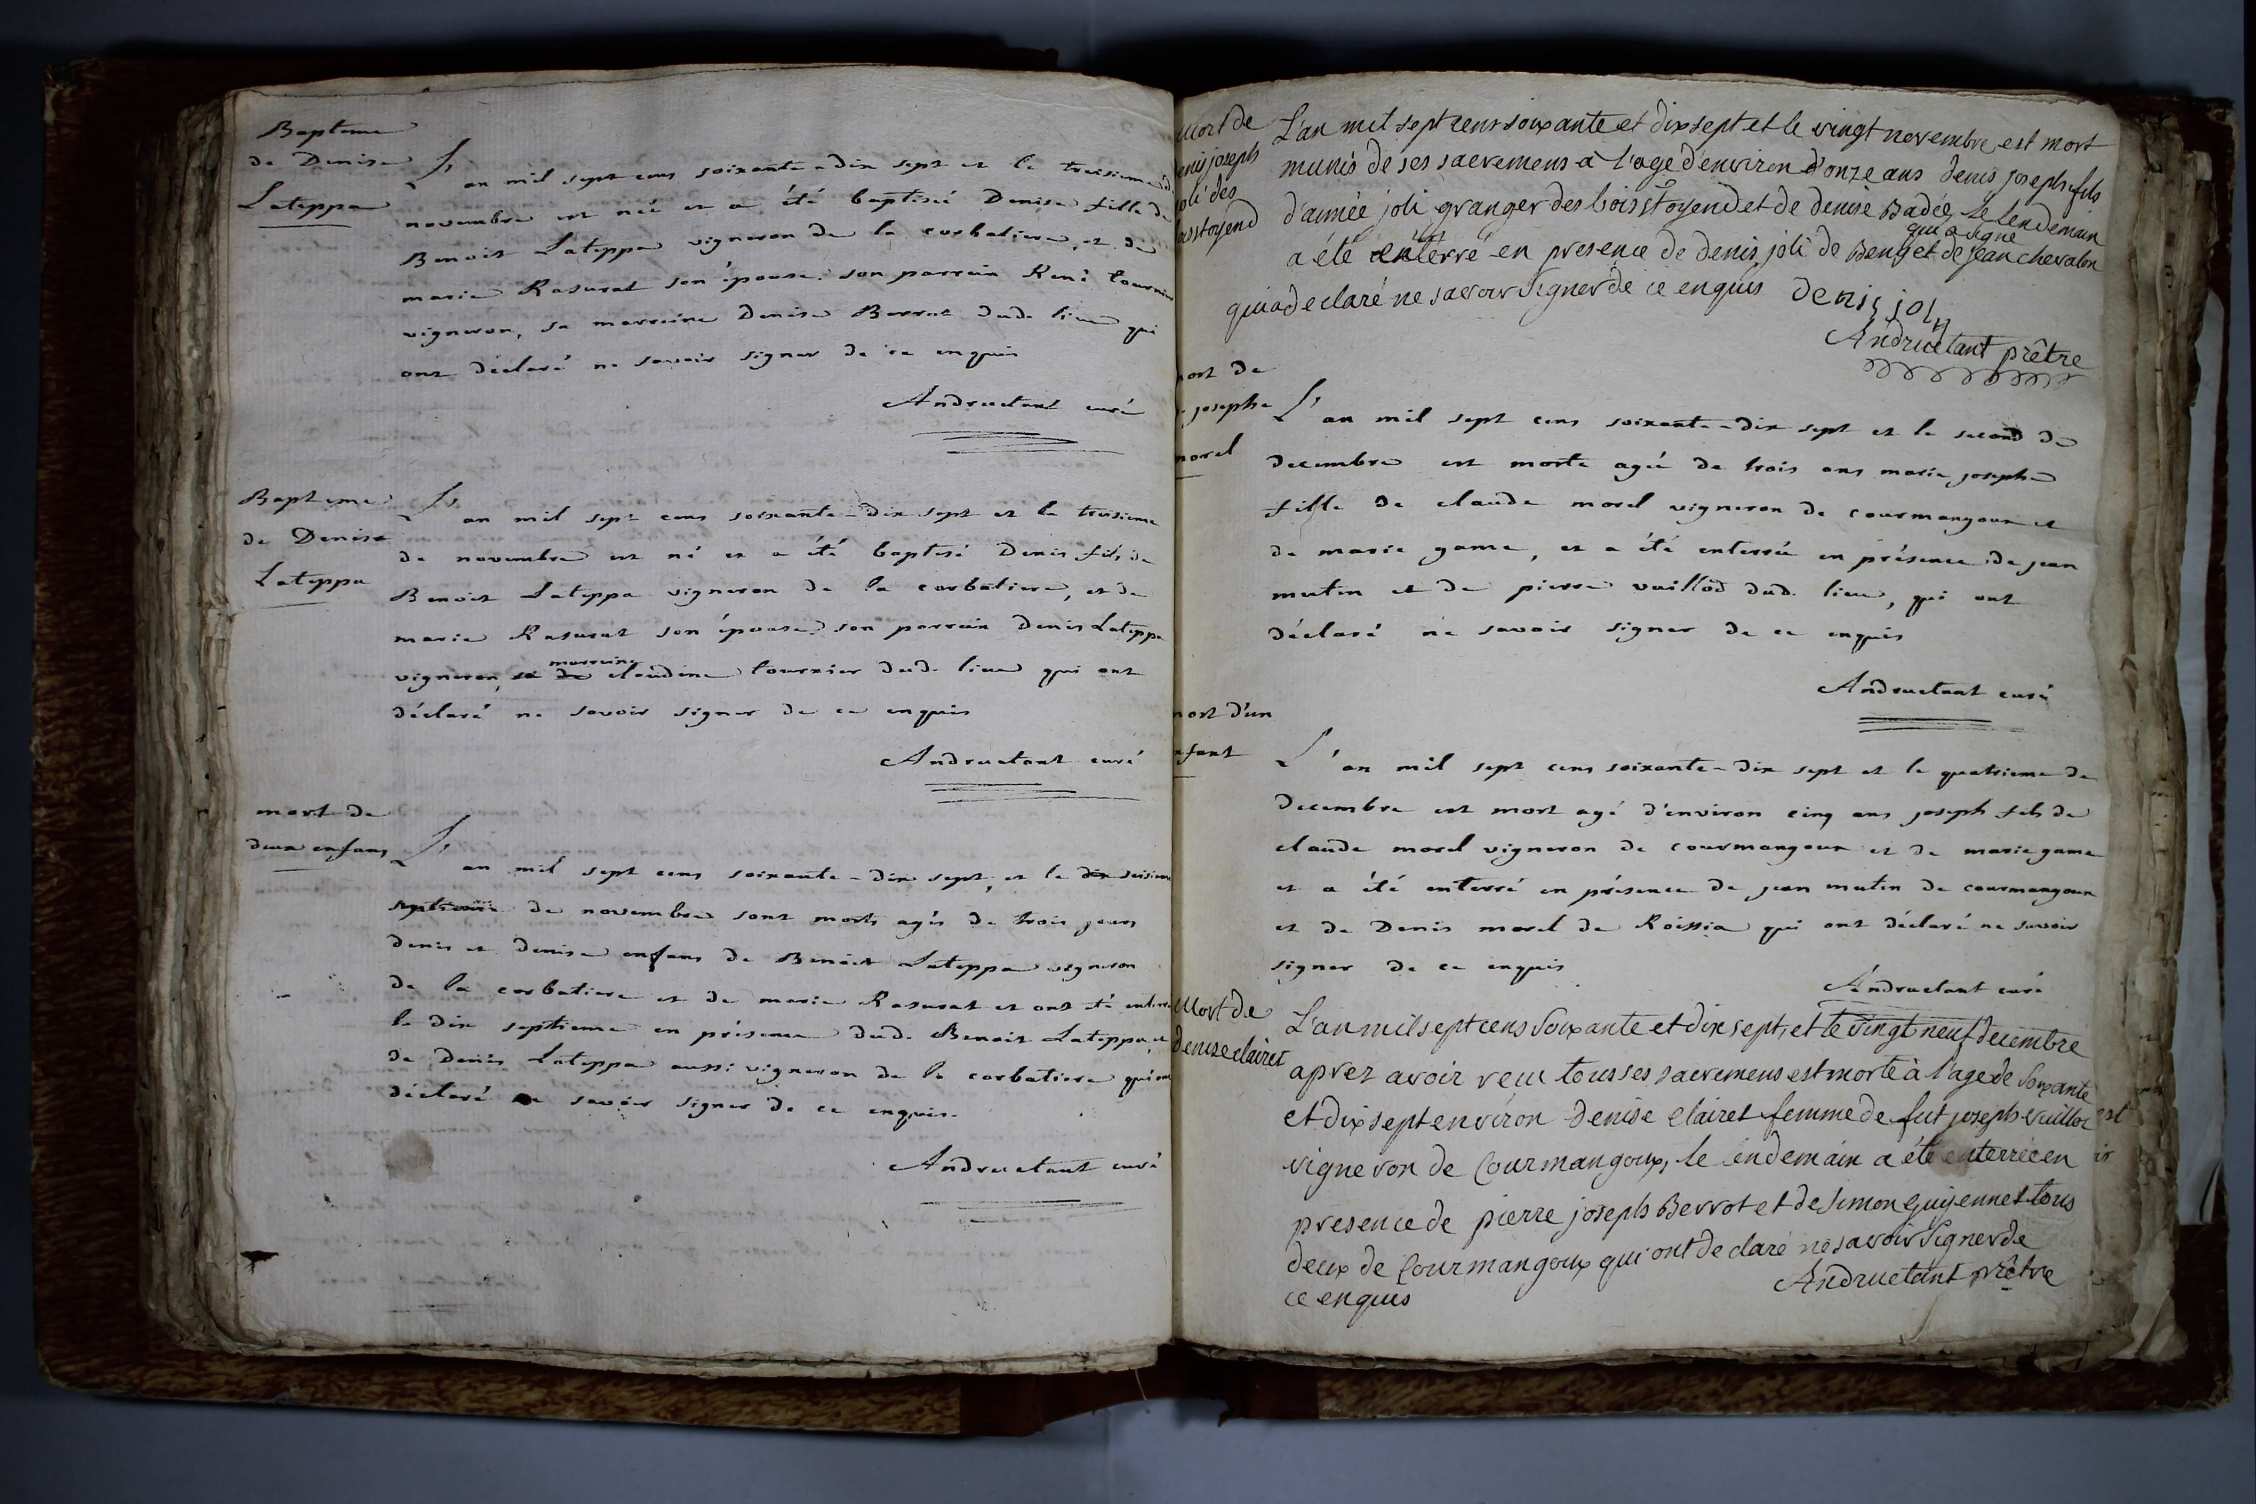 Bapteme
de Denise
Lateppa
L'an mil sept cens soixante-dix sept et le treisieme de
novembre est née et a été baptisée Denise fille de
Benoit Lateppa vigneron de la corbatiere, et de
marie Rasurat son épouse. son parrain René tournier
vigneron, sa marreine Denise Berrot dud. lieu qui
ont déclaré ne savoir signer de ce enquis
Andructant curé
Bapteme
de Denis
Lateppa
L'an mil sept cens soixante-dix sept et le treisieme
de novembre est né et a été baptisé Denis fils de
Benoit Lateppa vigneron de la corbatiere, et de
marie Rasurat son épouse. son parrain Denis Lateppa
vigneron, sa marreine claudine tournier dud. lieu qui ont
déclaré ne savoir signer de ce enquis
Andructant curé
mort de
deux enfans
L'an mil sept cens soixante-dix sept, et le dix seisieme
septieme de novembre sont morts agés de trois jours
denis et denise enfans de Benoit Lateppa vigneron
de la corbatiere et de marie Rasurat et ont été enterrés
le dix septieme en présence dud. Benoit Lateppa, et
de Denis Lateppa aussi vigneron de la corbatiere qui ont
déclaré ne savoir signer de ce enquis.
Andructant curé
Mort de
denis joseph
joli des
bois stoyend
L'an mil sept cens soixante et dix sept et le vingt novembre est mort
munis de ses sacremens a l'age d'environ d'onze ans denis joseph fils
d'aimée joli granger des bois stoyend et de denise Badée, le lendemain
a été enterré en presence de denis joli de Beng qui a signé et de jean chevalon
qui a declaré ne savoir signer de ce enquis
denis joly
Andructant prêtre
mort de
josephe
morel
L'an mil sept cens soixante-dix sept et le second de
decembre est morte agée de trois ans marie josephe
fille de claude morel vigneron de courmangoux et
de marie game, et a été enterrée en présence de jean
mutin et de pierre vuillod dud. lieu, qui ont
déclaré ne savoir signer de ce enquis
Andructant curé
mort d'un
enfant
L'an mil sept cens soixante-dix sept et le quatrieme de
decembre est mort agé d'environ cinq ans joseph fils de
claude morel vigneron de courmangoux et de marie game
et a été enterré en présence de jean mutin de courmangoux
et de Denis morel de Roissia qui ont déclaré ne savoir
signer de ce enquis
Andructant curé
Mort de
denise clairet
L'an mil sept cens soixante et dix sept, et le vingt neuf decembre
aprez avoir reçu tous ses sacremens est morte à l'age de soixante
et dix sept environ denise clairet femme de fut joseph vuillot
vigneron de Courmangoux, le lendemain a été enterrée en
presence de pierre joseph Berrot et de simon guyennet tous
deux de Courmangoux qui ont declaré ne savoir signer de
ce enquis
Andructant prêtre